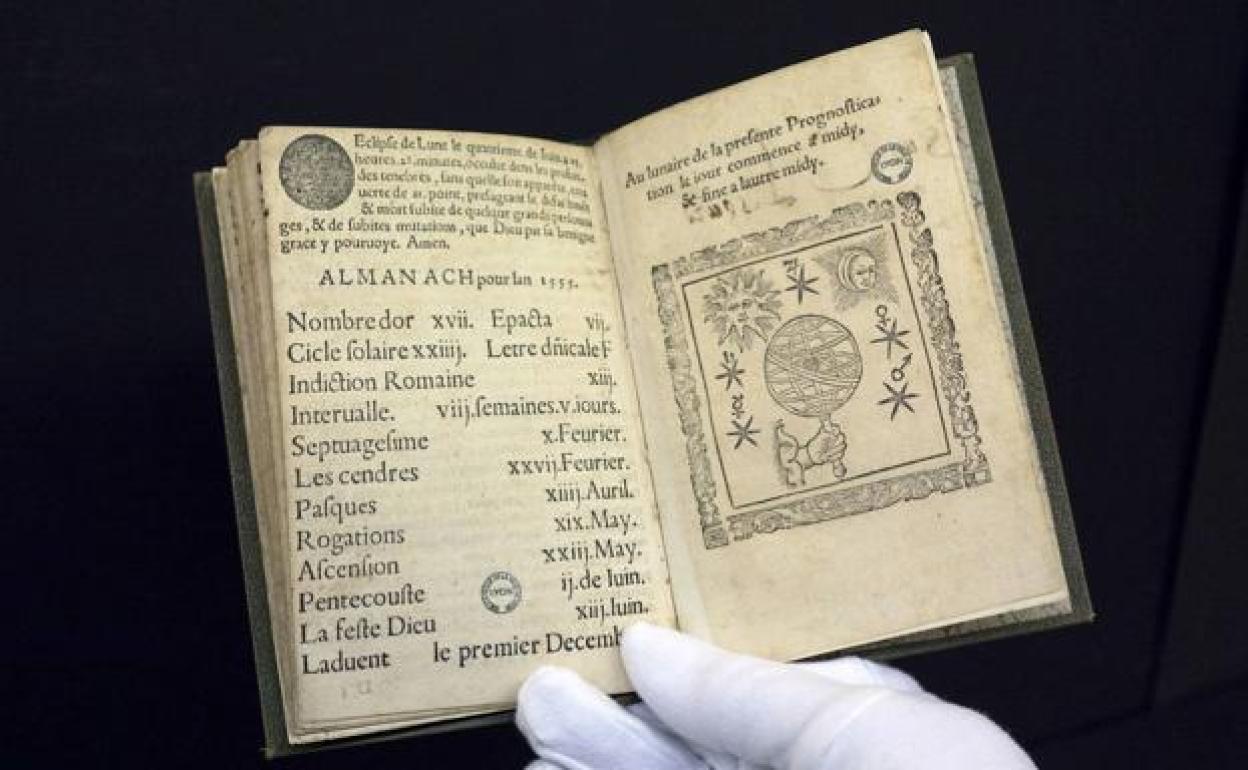 Eclipſe de Lune le quatrieme de Iuin a 14.
heures 23. minutes, occulte dens les
des tenebres, ſans quelle ſoit
de 21. point, preſageant la
& mort ſubite de quelque grands
ges, & de ſubites mutations, que Dieu par ſa benigne
grace y pouruoye. Amen.
ALMANACH pour lan 1555.
Nombre dor xvii. Epacta vij.
Cicle ſolaire xxiiij. Letre dñicale F
Indiction Romaine xiij.
Interualle. viij.ſemaines.v.iours.
Septuageſime x.Feurier.
Les cendres xxvij.Feurier.
Paſques xiiij.Auril.
Rogations xix.May.
Aſcenſion xxiij.May.
Pentecouſte ij.de Iuin.
La feſte Dieu xiij.Iuin.
Laduent le premier Decemb
LYON
Au lunaire de la preſente Prognoſtica-
tion le iour commence a midy,
& fine a lautre midy.
LYON
♄
♀
♂